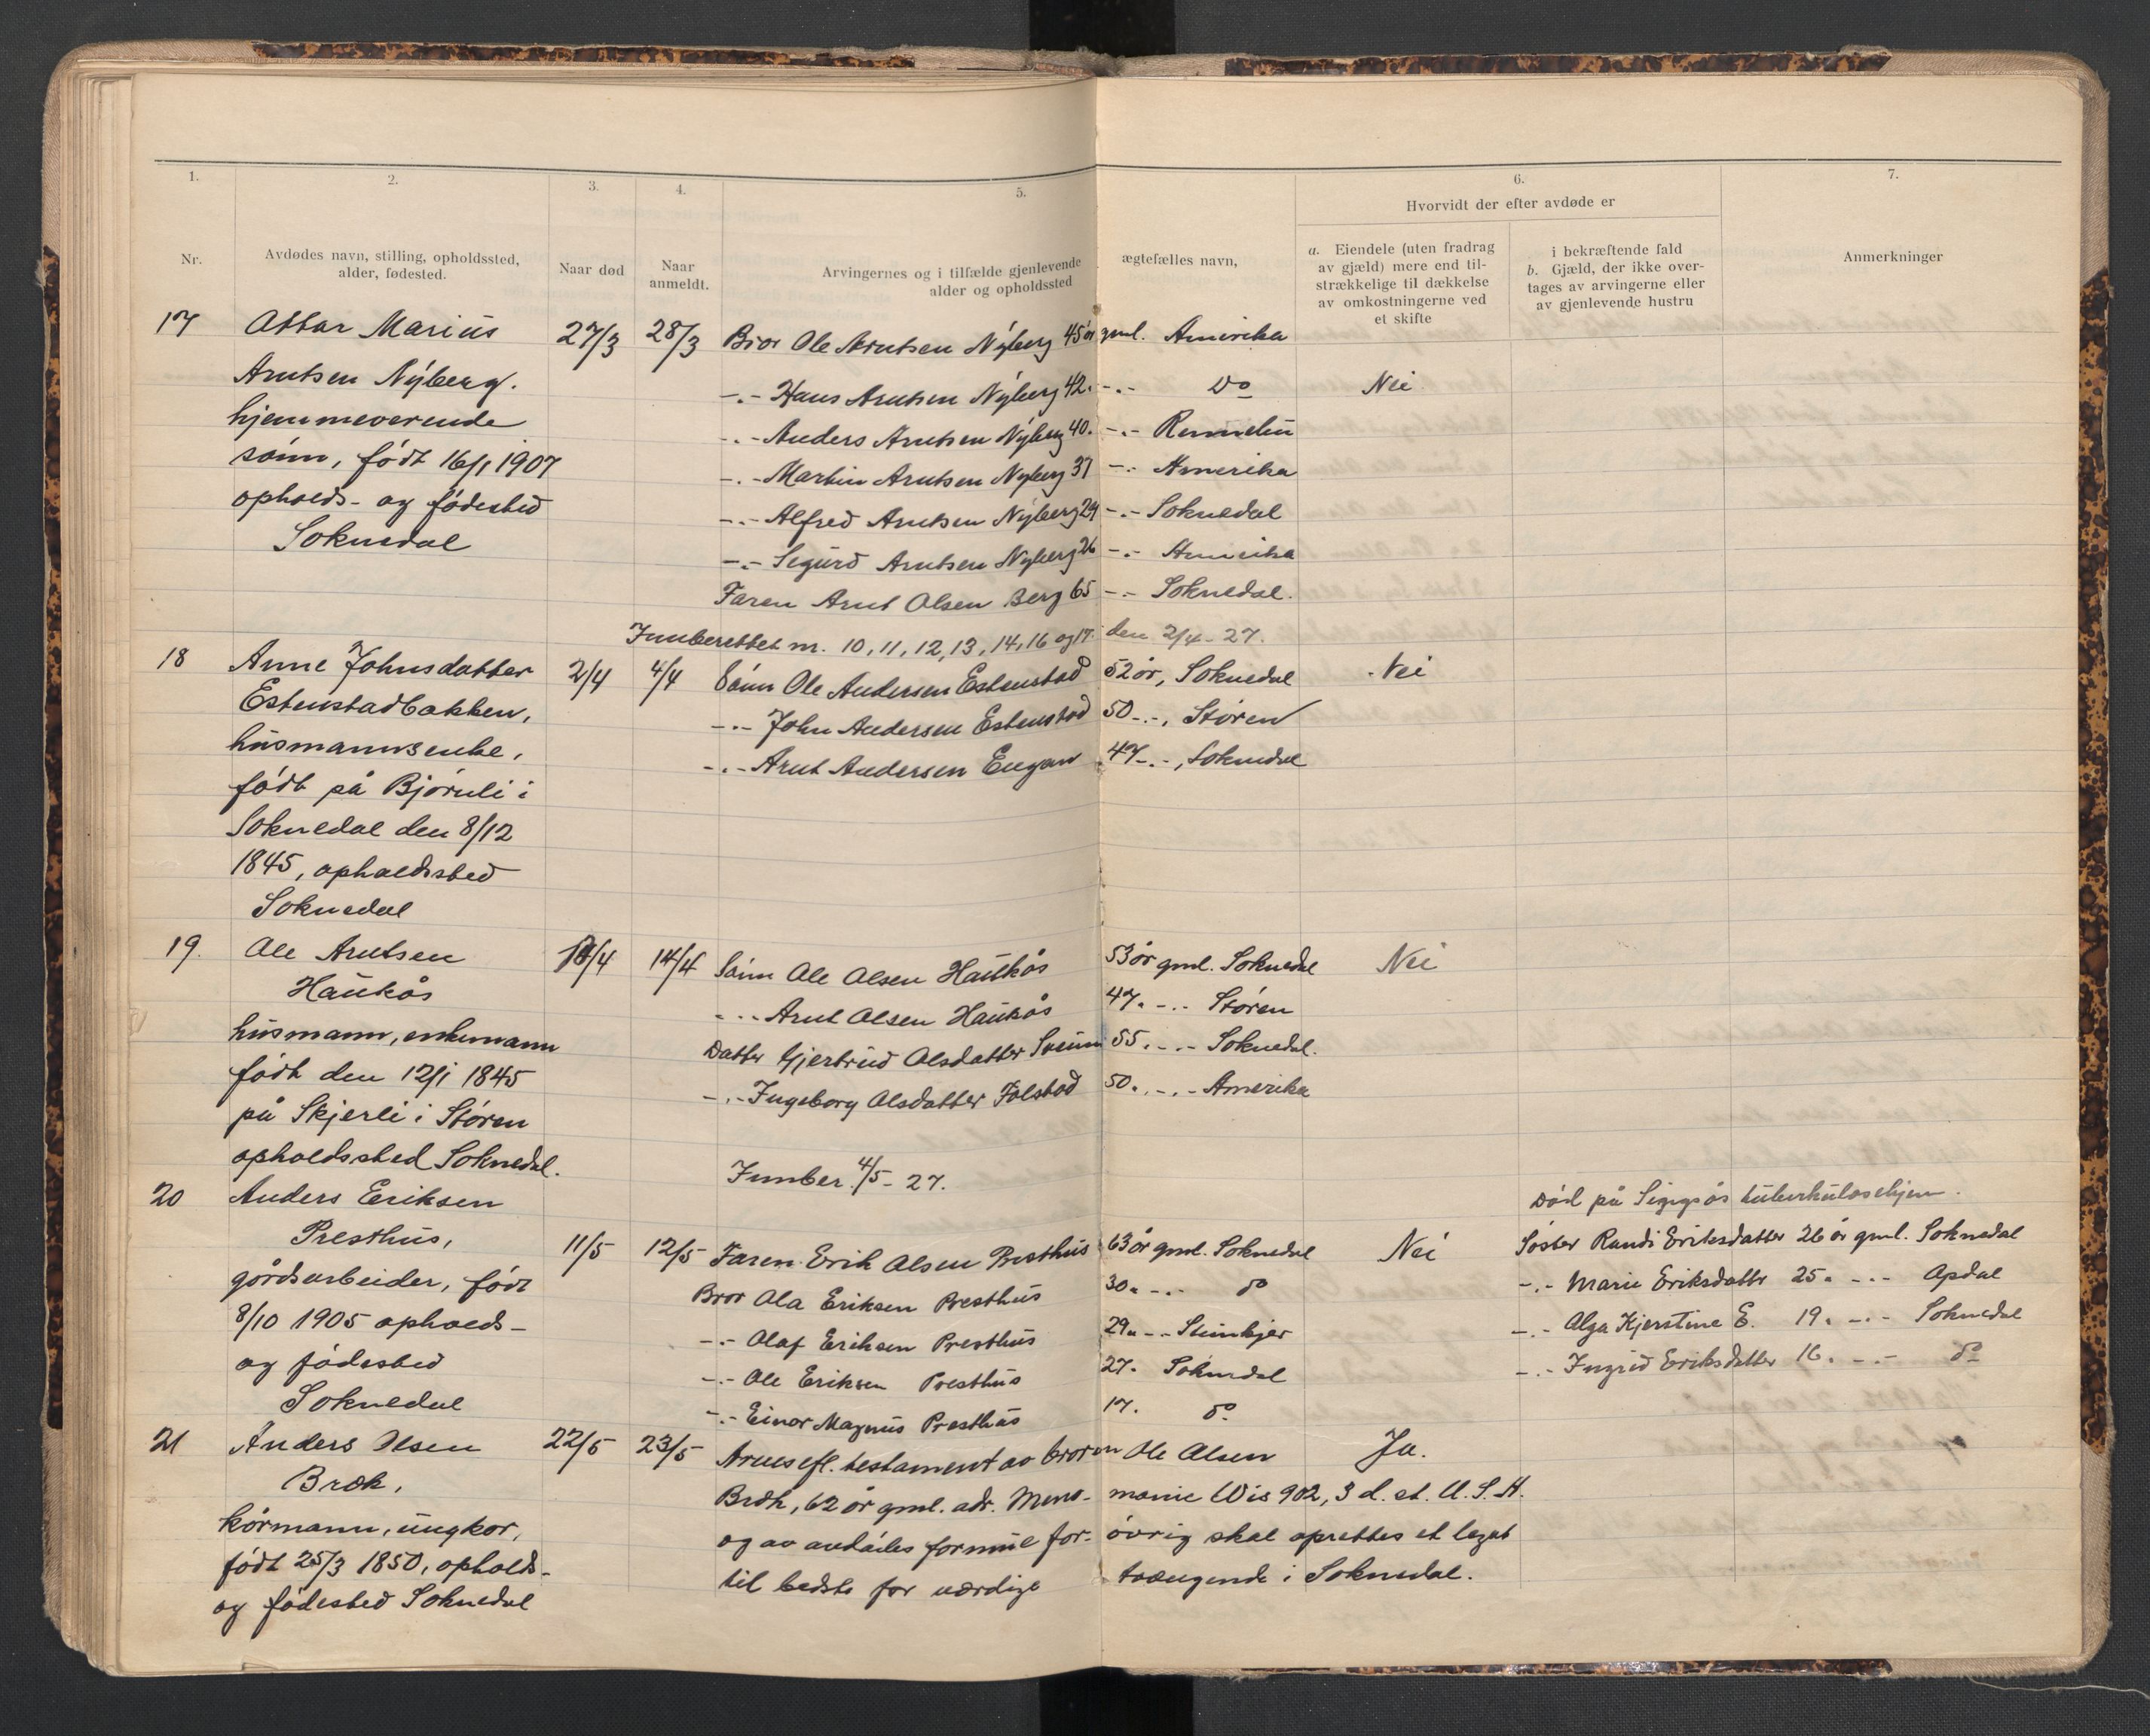 1. 2. 3. 4. 5. 6. 7.
Hvorvidt der efter avdøde er
Nr. Avdødes navn, stilling, opholdssted, alder, fødested. Naar død Naar anmeldt. Arvingernes og i tilfælde gjenlevende ægtefælles navn, alder og opholdssted
a. Eiendele (uten fradrag av gjæld) mere end tilstrækkelige til dækkelse av omkostningerne ved et skifte
i bekræftende fald b. Gjæld, der ikke overtages av arvingerne eller av gjenlevende hustru
Anmerkninger
17 Ottar Marius 27/3 28/3 Bror Ole Arntsen Nyberg 45 år gml. Amerika
Arntsen Nyberg. -.- Hans Arntsen Nyberg 42. -.- Do Nei
hjemmeverende -.- Anders Arntsen Nyberg 40. -.- Rennebu
sønn, født 16/1 1907 -.- Martin Arntsen Nyberg 37 -.- Amerika
opholds- og fødested -.- Alfred Arntsen Nyberg 29 -.- Soknedal
Soknedal -.- Sigurd Arntsen Nyberg 26 -.- Amerika
Faren Arnt Olsen Berg 65 -.- Soknedal.
Innberettet nr. 10, 11, 12, 13, 14, 16 og 17. den 2/4 - 27.
18 Anne Johnsdatter 2/4 4/4 Sønn Ole Andersen Estenstad 52 år, Soknedal Nei
Estenstadbakken, -.- John Andersen Estenstad 50 -.-, Støren
husmannsenke, -.- Arnt Andersen Engan 47 -.-, Soknedal
født på Bjørnli i
Soknedal den 8/12
1845, opholdssted
Soknedal
19. Ole Arntsen /4 14/4 Sønn Ole Olsen Haukås 53 år gml. Soknedal Nei
Haukås -.- Arnt Olsen Haukås 47. -.- Støren
husmann, enkemann Datter Gjertrud Olsdatter Sveum 55. -.- Soknedal.
født den 12/1 1845 -.- Ingeborg Olsdatter Folstad 50. -.- Amerika
på Skjerli i Støren
opholdssted Soknedal. Innber. 4/5 - 27.
20 Anders Eriksen Død på Siggsås tuberkulosehjem.
Presthus, 11/5 12/5 Faren Erik Olsen Presthus 63 år gml. Soknedal Nei Søster Randi Eriksdatter 26 år gml. Soknedal
gårdsarbeider, født Bror Ola Eriksen Presthus 30. -.- do -.- Marie Eriksdatter 25. -.- Opdal
8/10 1905 opholds- -.- Olaf Eriksen Presthus 29. -.- Steinkjer -.- Olga Kjerstine E. 19. -.- Soknedal
og fødested -.- Ole Eriksen Presthus 27. Soknedal -.- Ingrid Eriksdatter 16. -.- do
Soknedal -.- Einar Magnus Presthus 17. do
21 Anders Olsen 22/5 23/5 Arves efl. testament av broren Ole Olsen Ja.
Bræk, Bræk, 62 år gml. adr. Menomonie Wis 902, 3 d. st. U.S.A.
kårmann, ungkar, og av avdødes formue forøvrig skal oprettes et legat
født 25/3 1850, opholds- til bedste for værdige trængende i Soknedal.
og fødested Soknedal